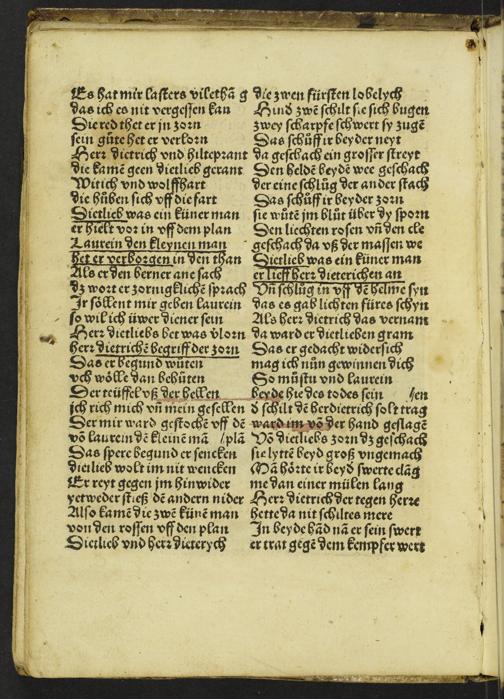 Es hat mir lasters vil ethā g
das ich es nit vergessen kan
Die red thet er jn zorn
sein gůte het er verlorn
Herr dietrich vnd hilteprant
die kamē geen dietlieb gerant
Witich vnd wolffhart
die hůben sich vff die fart
Dietlieb was ein kůner man
er hielt vor in vff dem plan
Laurein den kleynen man
het er verborgen in den than
Als er den berner ane sach
dz wort er zorniglichē sprach
Ir sŏllent mir geben laurein
so wil ich ŭwer diener sein
Herr dietliebs bet was v̄lorn
herr dietrichē begriff der zorn
Das er begund wŭten
vch wŏlle dan behŭten
Der teŭffel vß der hellen
ich rich mich vn̄ mein gesellen
Der mir ward gestochē vff dē
vō laurein dē kleinē mā /plā
Das spere begund er sencken
dietlieb wolt im nit wencken
Er reyt gegen jm hinwider
yetweder stieß dē andern nider
Also kamē die zwē kŭnē man
von den rossen vff den plan
Dietlieb vnd herr dieterych
die zwen fŭrsten lobelych
Hind zwē schilt sie sich bugen
zwey scharpfe schwert sy zugē
Das schŭff ir beyder neyt
da geschach ein grosser streyt
Den heldē beydē wee geschach
der eine schlŭg der ander stach
Das schŭff ir beyder zorn
sie wŭtē jm blŭt ŭber dy sporn
Den liechten rosen vn̄ den cle
geschach da vß der massen we
Dietlieb was ein kŭner man
er lieff herr dieterichen an
Vn̄ schlŭg in vff dē helme syn
das es gab lichten fŭres schyn
Als herr dietrich das vernam
da ward er dietlieben gram
Das er gedacht widersich
mag ich nŭn gewinnen dich
So mŭstu vnd laurein
beyde hie des todes sein /len
d schilt dē herdietrich solt trag
ward im vō der hand geslagē
Vō dietliebs zorn dz geschach
sie lyttē beyd groß vngemach
Mā hŏrte ir beyd swerte clāg
me dan einer mŭlen lang
Herr dietrich der tegen herre
hette da nit schiltes mere
In beyde hād nā er sein swert
er trat gegē dem kempfer wert